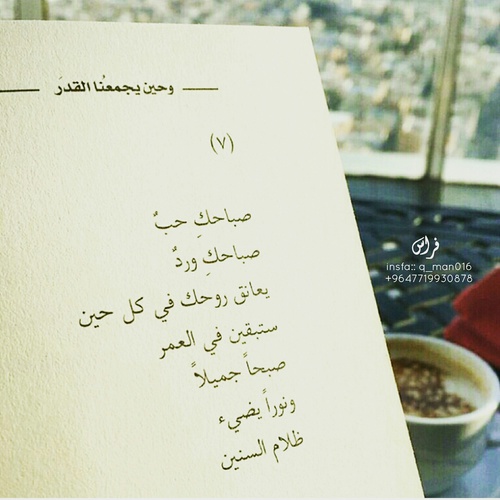 وحين يجمعُنا القدَر
(٧)
صباحكِ حبٌ
صباحكِ وردٌ
يعانق روحك في كل حين
ستبقين في العمر
صبحاً جميلاً
ونوراً يضيء
ظلام السنين
فراس
insta:: a_man016
+9647719930878